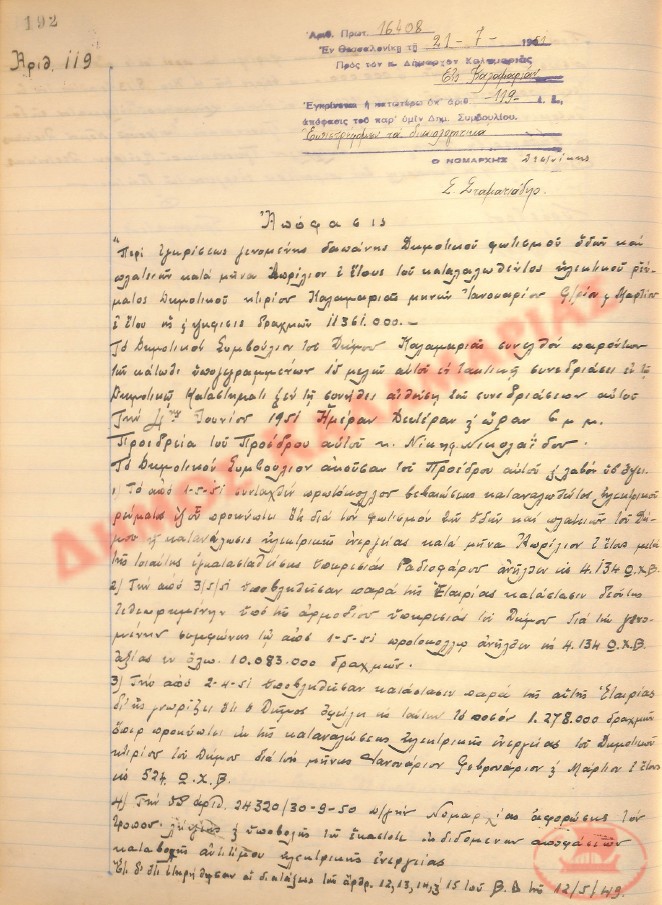 192
Αριθ. 119
Αριθ. Πρωτ. 16408
Εν Θεσσαλονίκη τη 21-7-1951
Πρός τόν κ. Δήμαρχον Καλαμαριάς
Εις Καλαμαριάν
Εγκρίνεται ή κατωτέρω ύπ' άριθ. 119
άπόφασις τού παρ' ύμίν Δημ. Συμβουλίου.
Επιστρέφομεν τα δικαιολογητικα
Ο ΝΟΜΑΡΧΗΣ
Σ. Σταματιάδης
Απόφασις
"Περί εγκρίσεως γενομένης δαπάνης Δημοτικού φωτισμού οδών και
πλατειών κατά μήνα Απρίλιον ε έτους του καταναλωθέντος ηλεκτρικού ρεύ-
ματος Δημοτικού κτιρίου Καλαμαριάς μηνών Ιανουαρίου Φ/ρίου ξ Μαρτίου
ε έτους ξ ψήφισις δραχμών 11361.000.-
Τό Δημοτικόν Συμβούλιον του Δήμου Καλαμαριάς συνελθόν παρόντων
τών κάτωθι υπογεγραμμένων μελών αυτού εν τακτική συνεδριάσει εν τω
Δημοτικώ Καταστήματι ξ εν τη συνήθει αιθούση των συνεδριάσεων αυτού
Την 4ην Ιουνίου 1951 Ημέραν Δευτέραν ξ ώραν 6 μ.μ.
Προεδρεία του Προέδρου αυτού κ. Νίκης Νικολαΐδου.
Τό Δημοτικόν Συμβούλιον ακούσαν του Προέδρου αυτού ξ λαβόν υπ' όψει.
1) Τό από 1-5-51 συνταχθέν πρωτόκολλον βεβαιώσεως καταναλωθέντος ηλεκτρικού
ρεύματος εξ ού προκύπτει ότι διά τον φωτισμόν των οδών και πλατειών του Δή-
μου η κατανάλωσις ηλεκτρικής ενεργείας κατά μήνα Απρίλιον ε έτους μετά
της εγκατασταθείσης υπηρεσίας Ραδιοφάρου ανήλθεν εις 4.134 Ω.Χ.Β.
2) Την από 3/5/51 υποβληθείσαν παρά της Εταιρίας κατάστασιν
τεθεωρημένην υπό της αρμοδίου υπηρεσίας του Δήμου διά την γενο-
μένην συμφώνως τω από 1-5-51 πρωτοκόλλω ανήλθεν εις 4.134 Ω.Χ.Β.
αξίας εν όλω 10.083.000 δραχμών.
3) Την από 2-4-51 υποβληθείσαν κατάστασιν παρά της αυτής Εταιρίας
δι' ής γνωρίζει ότι ο Δήμος οφείλει εις ταύτην το ποσόν 1.278.000 δραχμών
όπερ προκύπτει εκ της καταναλώσεως ηλεκτρικής ενεργείας του Δημοτικού
κτιρίου του Δήμου διά τούς μήνας Ιανουάριον Φεβρουάριον ξ Μάρτιον ε έτους
εις 524 Ω.Χ.Β.
4) Την υπ' αριθ. 24320/30-9-50 Νομαρχίας αφορώσης τον
τρόπον λήψεως ξ υποβολής των εκάστοτε εκδιδομένων αποφάσεων
καταβολής αντιτίμου ηλεκτρικής ενεργείας
Έτι δε ότι ετηρήθησαν αι διατάξεις των άρθρ. 12, 13, 14, ξ 15 του Β.Δ της 12/5/49.
ΔΗΜΟΣ ΚΑΛΑΜΑΡΙΑΣ